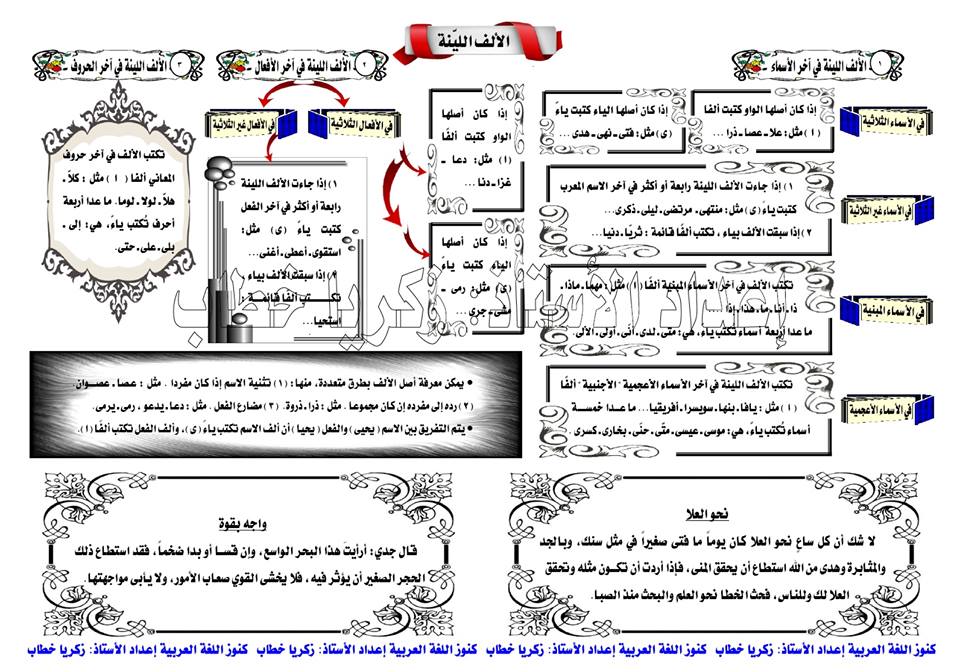 الألف الليّنة
١ الألف اللينة في آخر الأسماء ـ
في الأسماء الثلاثية
إذا كان أصلها الواو كتبت ألفا
( ا ) مثل : علا ـ عصا ـ ذرا ...
إذا كان أصلها الياء كتبت ياءً
(ى) مثل: فتى ـ نهى ـ هدى ...
في الأسماء غير الثلاثية
١) إذا جاءت الألف اللينة رابعة أو أكثر في آخر الاسم المعرب
كتبت ياءً (ى) مثل: منتهى ـ مرتضى ـ ليلى ـ ذكرى...
٢) إذا سبقت الألف بياء ، تكتب ألفا قائمة : ثريّا ـ دنيا...
في الأسماء المبنية
تكتب الألف في آخر الأسماء المبنية ألفا ( ا ) مثل: مهما ـ ماذا ـ
ذا ـ أنا ـ ما ـ هذا ـ إذا ...
ما عدا أربعة أسماء تُكتب ياءً، هي: متى ـ لدى ـ أنى ـ أولى ـ الألى.
في الأسماء الأعجمية
تكتب الألف اللينة في آخر الأسماء الأعجمية "الأجنبية" ألفًا
( ا ) مثل : يافا ـ بنها ـ سويسرا ـ أفريقيا... ما عدا خمسة
أسماء تُكتب ياءً، هي: موسى ـ عيسى ـ متّى ـ حنّى ـ بخارى ـ كسرى .
٢ الألف اللينة في آخر الأفعال ـ
في الأفعال الثلاثية
إذا كان أصلها
الواو كتبت ألفًا
(ا) مثل: دعا ـ
غزا ـ دنا ...
إذا كان أصلها
الياء كتبت ياءً
(ى) مثل: رمى ـ
مشى ـ جرى ...
في الأفعال غير الثلاثية
١) إذا جاءت الألف اللينة
رابعة أو أكثر في آخر الفعل
كتبت ياءً (ى) مثل:
استقوى ـ أعطى ـ أغنى...
٢) إذا سبقت الألف بياء
تكتب ألفا قائمة :
استحيا...
٣ الألف اللينة في آخر الحروف ـ
تكتب الألف في آخر حروف
المعاني ألفا ( ا ) مثل : كلاّ ـ
هلاّ ـ لولا ـ لوما. ما عدا أربعة
أحرف تُكتب ياءً، هي: إلى ـ
بلى ـ على ـ حتى.
إعداد الأستاذ: زكريا خطاب
• يمكن معرفة أصل الألف بطرق متعددة، منها: (١) تثنية الاسم إذا كان مفردا . مثل : عصا ـ عصوان.
(٢) رده إلى مفرده إن كان مجموعا . مثل : ذرا ـ ذروة. (٣) مضارع الفعل . مثل : دعا ـ يدعو ، رمى ـ يرمى.
• يتم التفريق بين الاسم ( يحيى) والفعل (يحيا) أن ألف الاسم تكتب ياءً (ى)، وألف الفعل تكتب ألفًا (ا).
نحو العلا
لا شك أن كل ساعٍ نحو العلا كان يوماً ما فتى صغيراً في مثل سنك، وبالجد
والمثابرة وهدى من الله استطاع أن يحقق المنى، فإذا أردت أن تكون مثله وتحقق
العلا لك وللناس، فحث الخطا نحو العلم والبحث منذ الصبا.
واجه بقوة
قال جدي: أرأيت هذا البحر الواسع، وإن قسا أو بدا ضخماً، فقد استطاع ذلك
الحجر الصغير أن يؤثر فيه ، فلا يخشى القوي صعاب الأمور، ولا يأبى مواجهتها.
كنوز اللغة العربية إعداد الأستاذ: زكريا خطاب كنوز اللغة العربية إعداد الأستاذ: زكريا خطاب كنوز اللغة العربية إعداد الأستاذ: زكريا خطاب كنوز اللغة العربية إعداد الأستاذ: زكريا خطاب